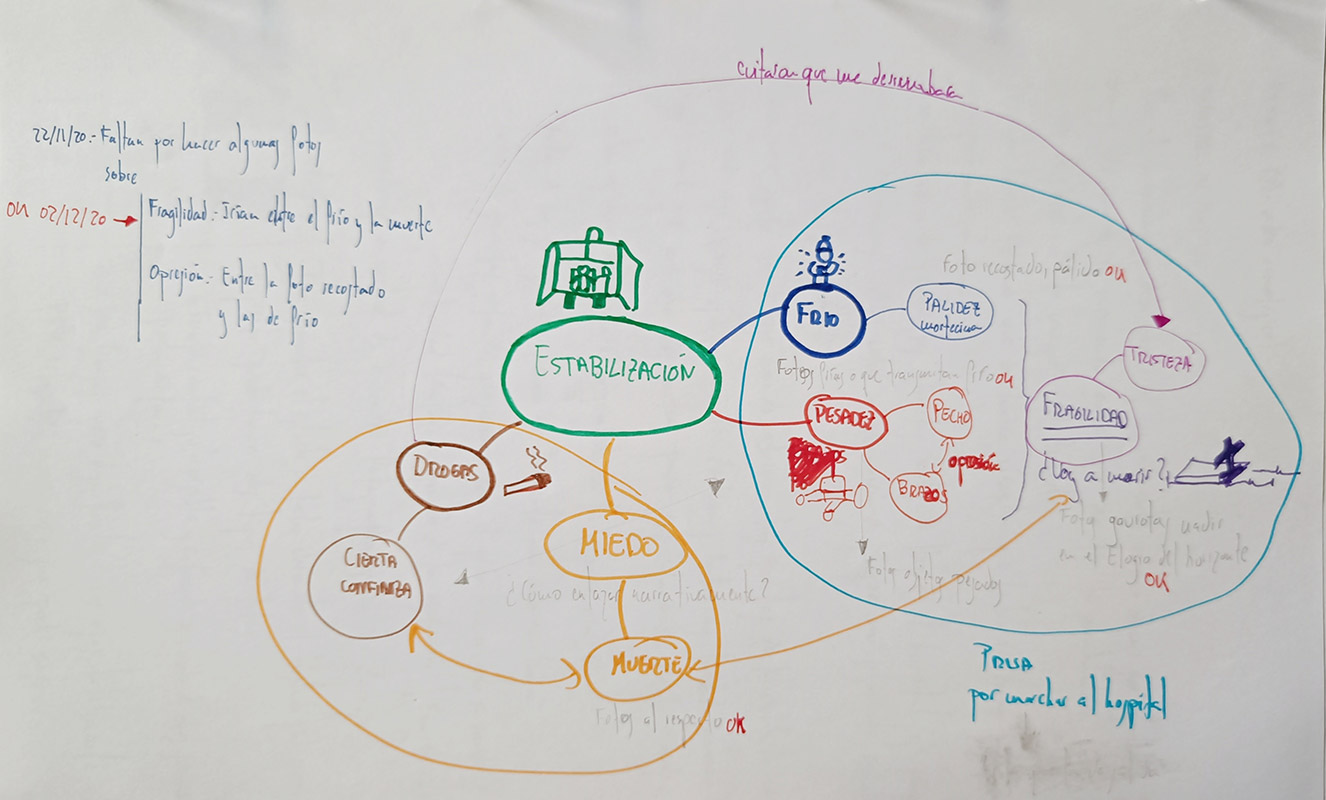 evitaran que me derrumbara
22/11/20.- Faltan por hacer algunas fotos
sobre
OK 02/12/20
Fragilidad.- Irían entre el frío y la muerte
Opresión.- Entre la foto recostado
y las de frío
ESTABILIZACIÓN
FRIO
PALIDEZ
mortecina
Foto recostado, pálido OK
Fotos frías o que transmitan frío OK
TRISTEZA
FRAGILIDAD
PESADEZ
PECHO
opresión
BRAZOS
¿Voy a morir?
Foto gaviotas
en el Elogio del horizonte
OK
Fotos objetos pesados
DROGAS
CIERTA
CONFIANZA
MIEDO
¿Cómo enlazar narrativamente?
MUERTE
Fotos al respecto OK
PRISA
por marchar al hospital